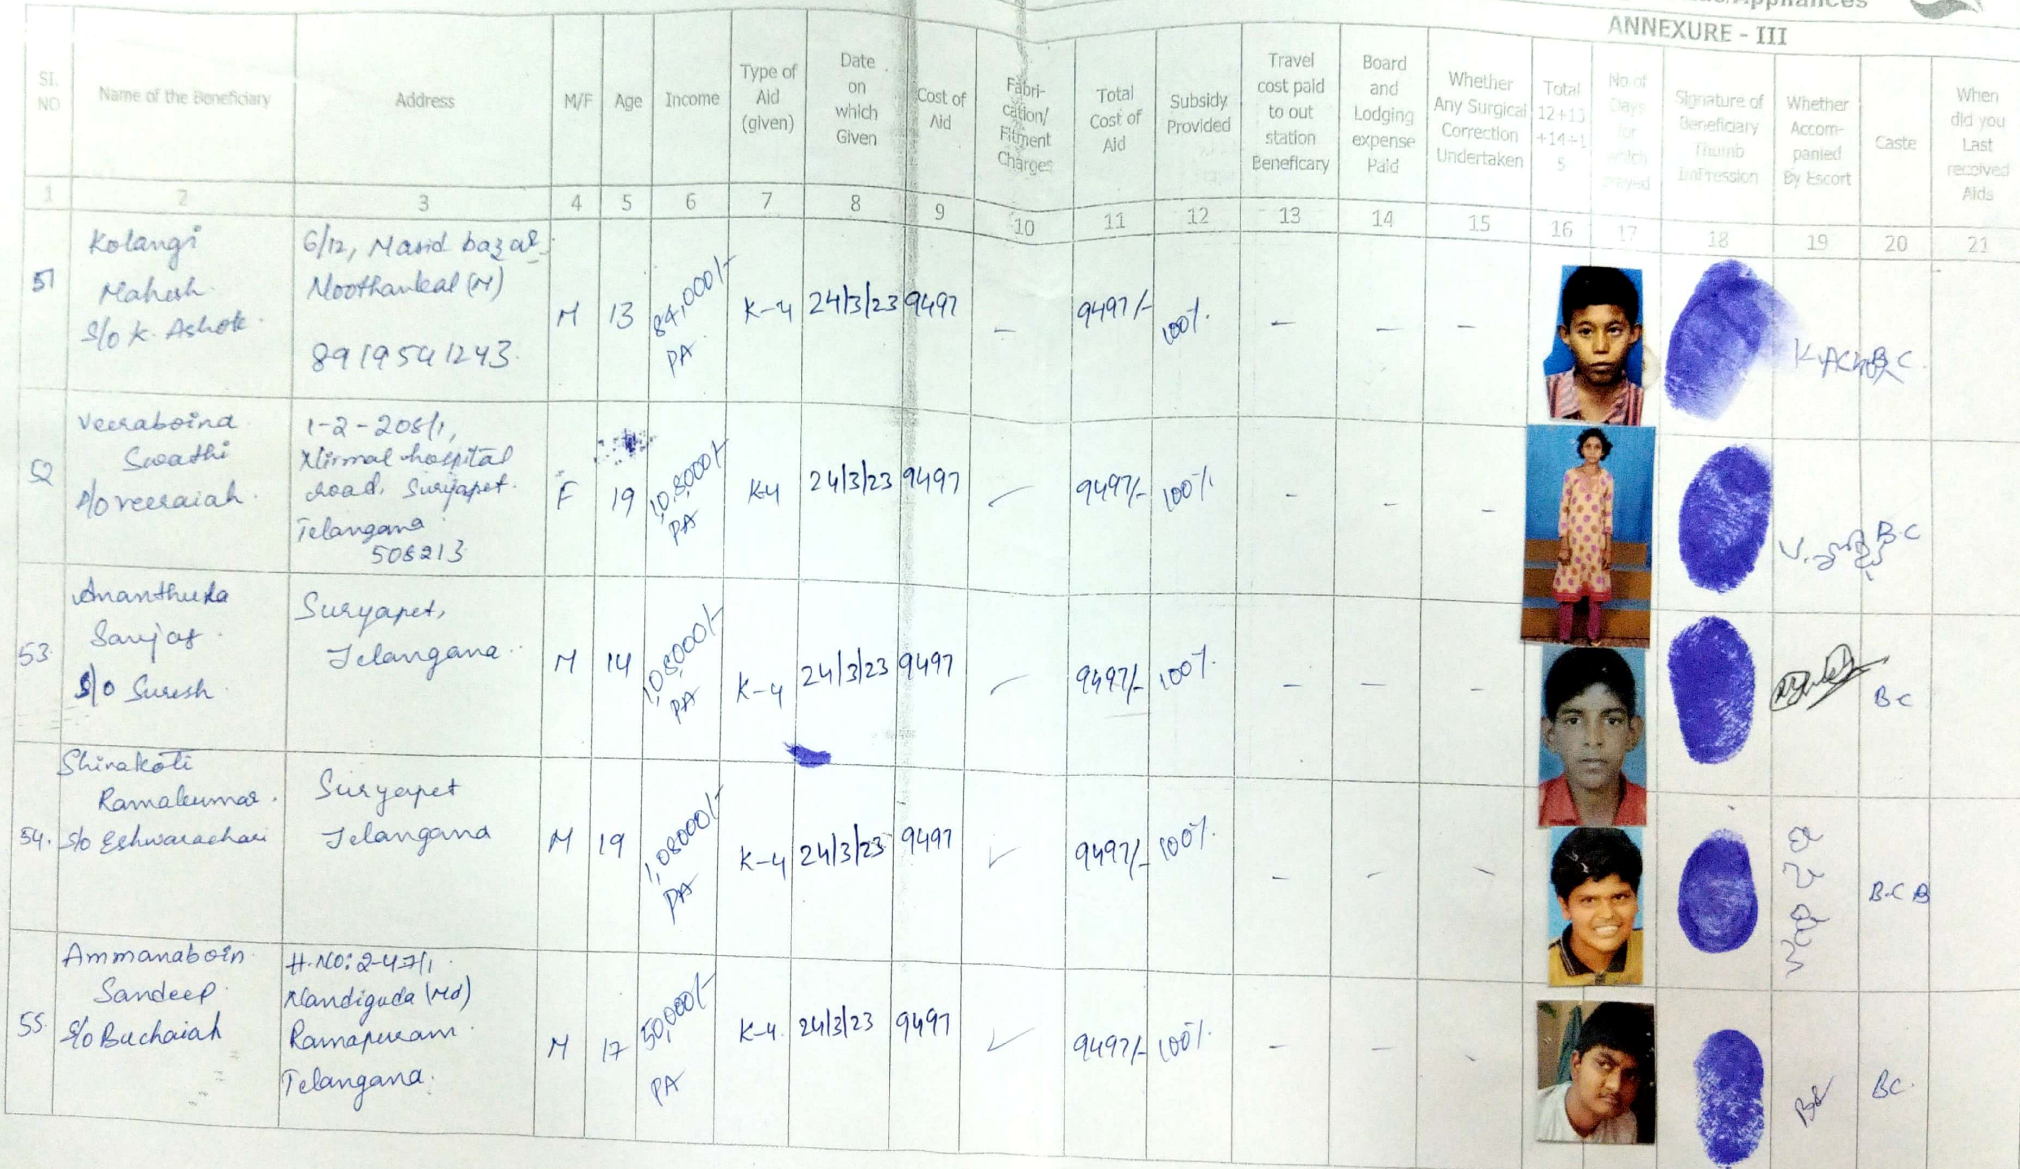 Appliances
ANNEXURE - III
SI. NO
Name of the Beneficiary
Address
M/F
Age
Income
Type of Aid (given)
Date on which Given
Cost of Aid
Fabri-cation/ Fitment Charges
Total Cost of Aid
Subsidy Provided
Travel cost paid to out station Beneficary
Board and Lodging expense Paid
Whether Any Surgical Correction Undertaken
Total 12+13 +14+1 5
No.of Days for which stayed
Signature of Beneficiary Thumb ImPression
Whether Accom-panied By Escort
Caste
When did you Last received Aids
1 2 3 4 5 6 7 8 9 10 11 12 13 14 15 16 17 18 19 20 21
51
Kolangi
Mahesh
S/o K. Ashok
6/12, Masid bazar
Noothankal (M)
8919541243
M 13 84,000/- PA K-4 24/3/23 9497 - 9497/- 100% - - - K.Ashok B.C
52
Veeraboina
Swathi
D/o Veeraiah
1-2-208/1,
Nirmal hospital
road, Suryapet.
Telangana
508213
F 19 1,08,000/- PA K-4 24/3/23 9497 - 9497/- 100% - - - V. B.C
53
Ananthula
Sanjay
S/o Suresh
Suryapet,
Telangana
M 14 1,08,000/- PA K-4 24/3/23 9497 - 9497/- 100% - - - BC
54.
Shirakoti
Ramakumar
S/o Eshwarachari
Suryapet
Telangana
M 19 1,08000/- PA K-4 24/3/23 9497 9497/- 100% - - - B.C B
55
Ammanaboin
Sandeep
S/o Buchaiah
H.NO: 2-47/1
Nandiguda (Md)
Ramapuram
Telangana.
M 17 50,000/- PA K-4. 24/3/23 9497 9497/- 100% - - - BC.